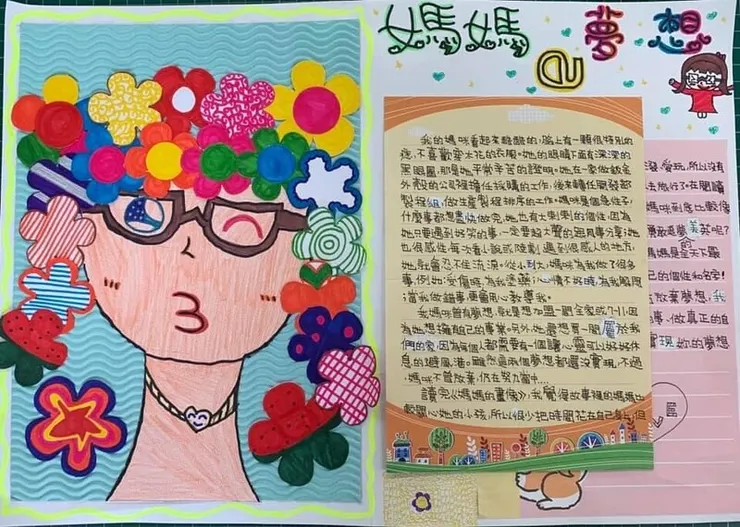 媽媽の夢想
我的媽咪看起來酷酷的，臉上有一顆很特別的
痣，不喜歡穿太花的衣服。她的眼睛下面有深深的
黑眼圈，那是她平常辛苦的證明。她在一家做鈑金
外殼的公司裡擔任採購的工作，後來轉任開發部
製程組，做生產製程排序的工作。媽咪是個急性子，
什麼事都想盡快做完，她也有大剌剌的個性，因為
她只要遇到好笑的事一定要超大聲的跟同事分享；她
也很感性，每次看小說或陸劇，遇到很感人的地方，
她就會忍不住流淚。從小到大，媽咪為我做了很多
事，例如：受傷時，為我塗藥；心情不好時，為我解悶
；當我做錯事，更會用心教導我。
我媽咪曾有夢想，就是想加盟一間全家或7-11，因
為她想擁有自己的事業。另外，她還想買一間屬於我
們的家，因為每個人都需要有一個讓心靈可以好好休
息的避風港。雖然這兩個夢想都還沒實現，不過
，媽咪不曾放棄，仍在努力當中……
讀完《媽媽的畫像》，我覺得故事裡的媽媽也
較關心她的小孩，所以很少把時間花在自己身上，但
愛玩，所以沒有
去旅行了。在閱讀
媽咪到底比較像
媽是全天下最
己的個性和名字！
放棄夢想，我
事、做真正的自
實現妳的夢想